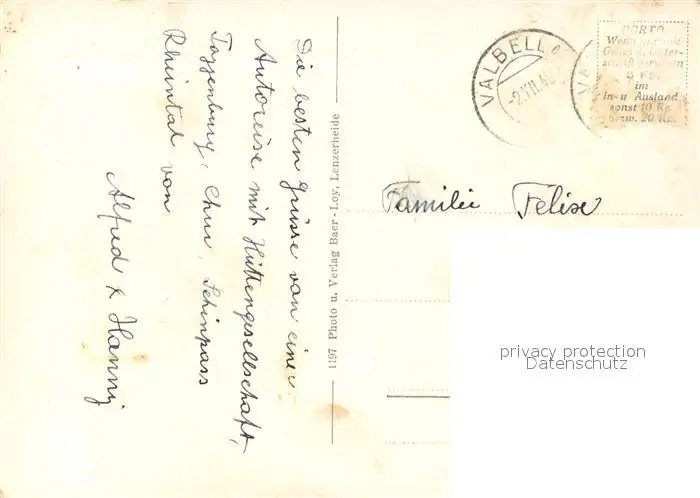 Die besten Grüsse von einer
Autoreise mit Hüttengesellschaft,
Toggenburg, Chur, Schinpass
Rheintal von
Alfred & Hanny
1197 Photo u. Verlag Baer-Loy, Lenzerheide
VALBELLA
-2.VII.4
VA
PORTO
Wenn nur mit
Gruss u. Unter-
schrift versehen
5 Rp.
im
In- u Ausland
sonst 10 Rp.
bzw. 20 Rp.
Familie Felise
privacy protection
Datenschutz